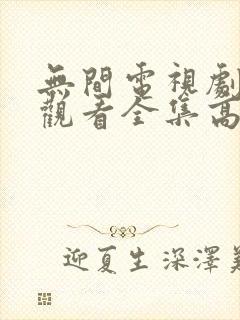 無間電視劇
觀看全集高
迎夏生深澤